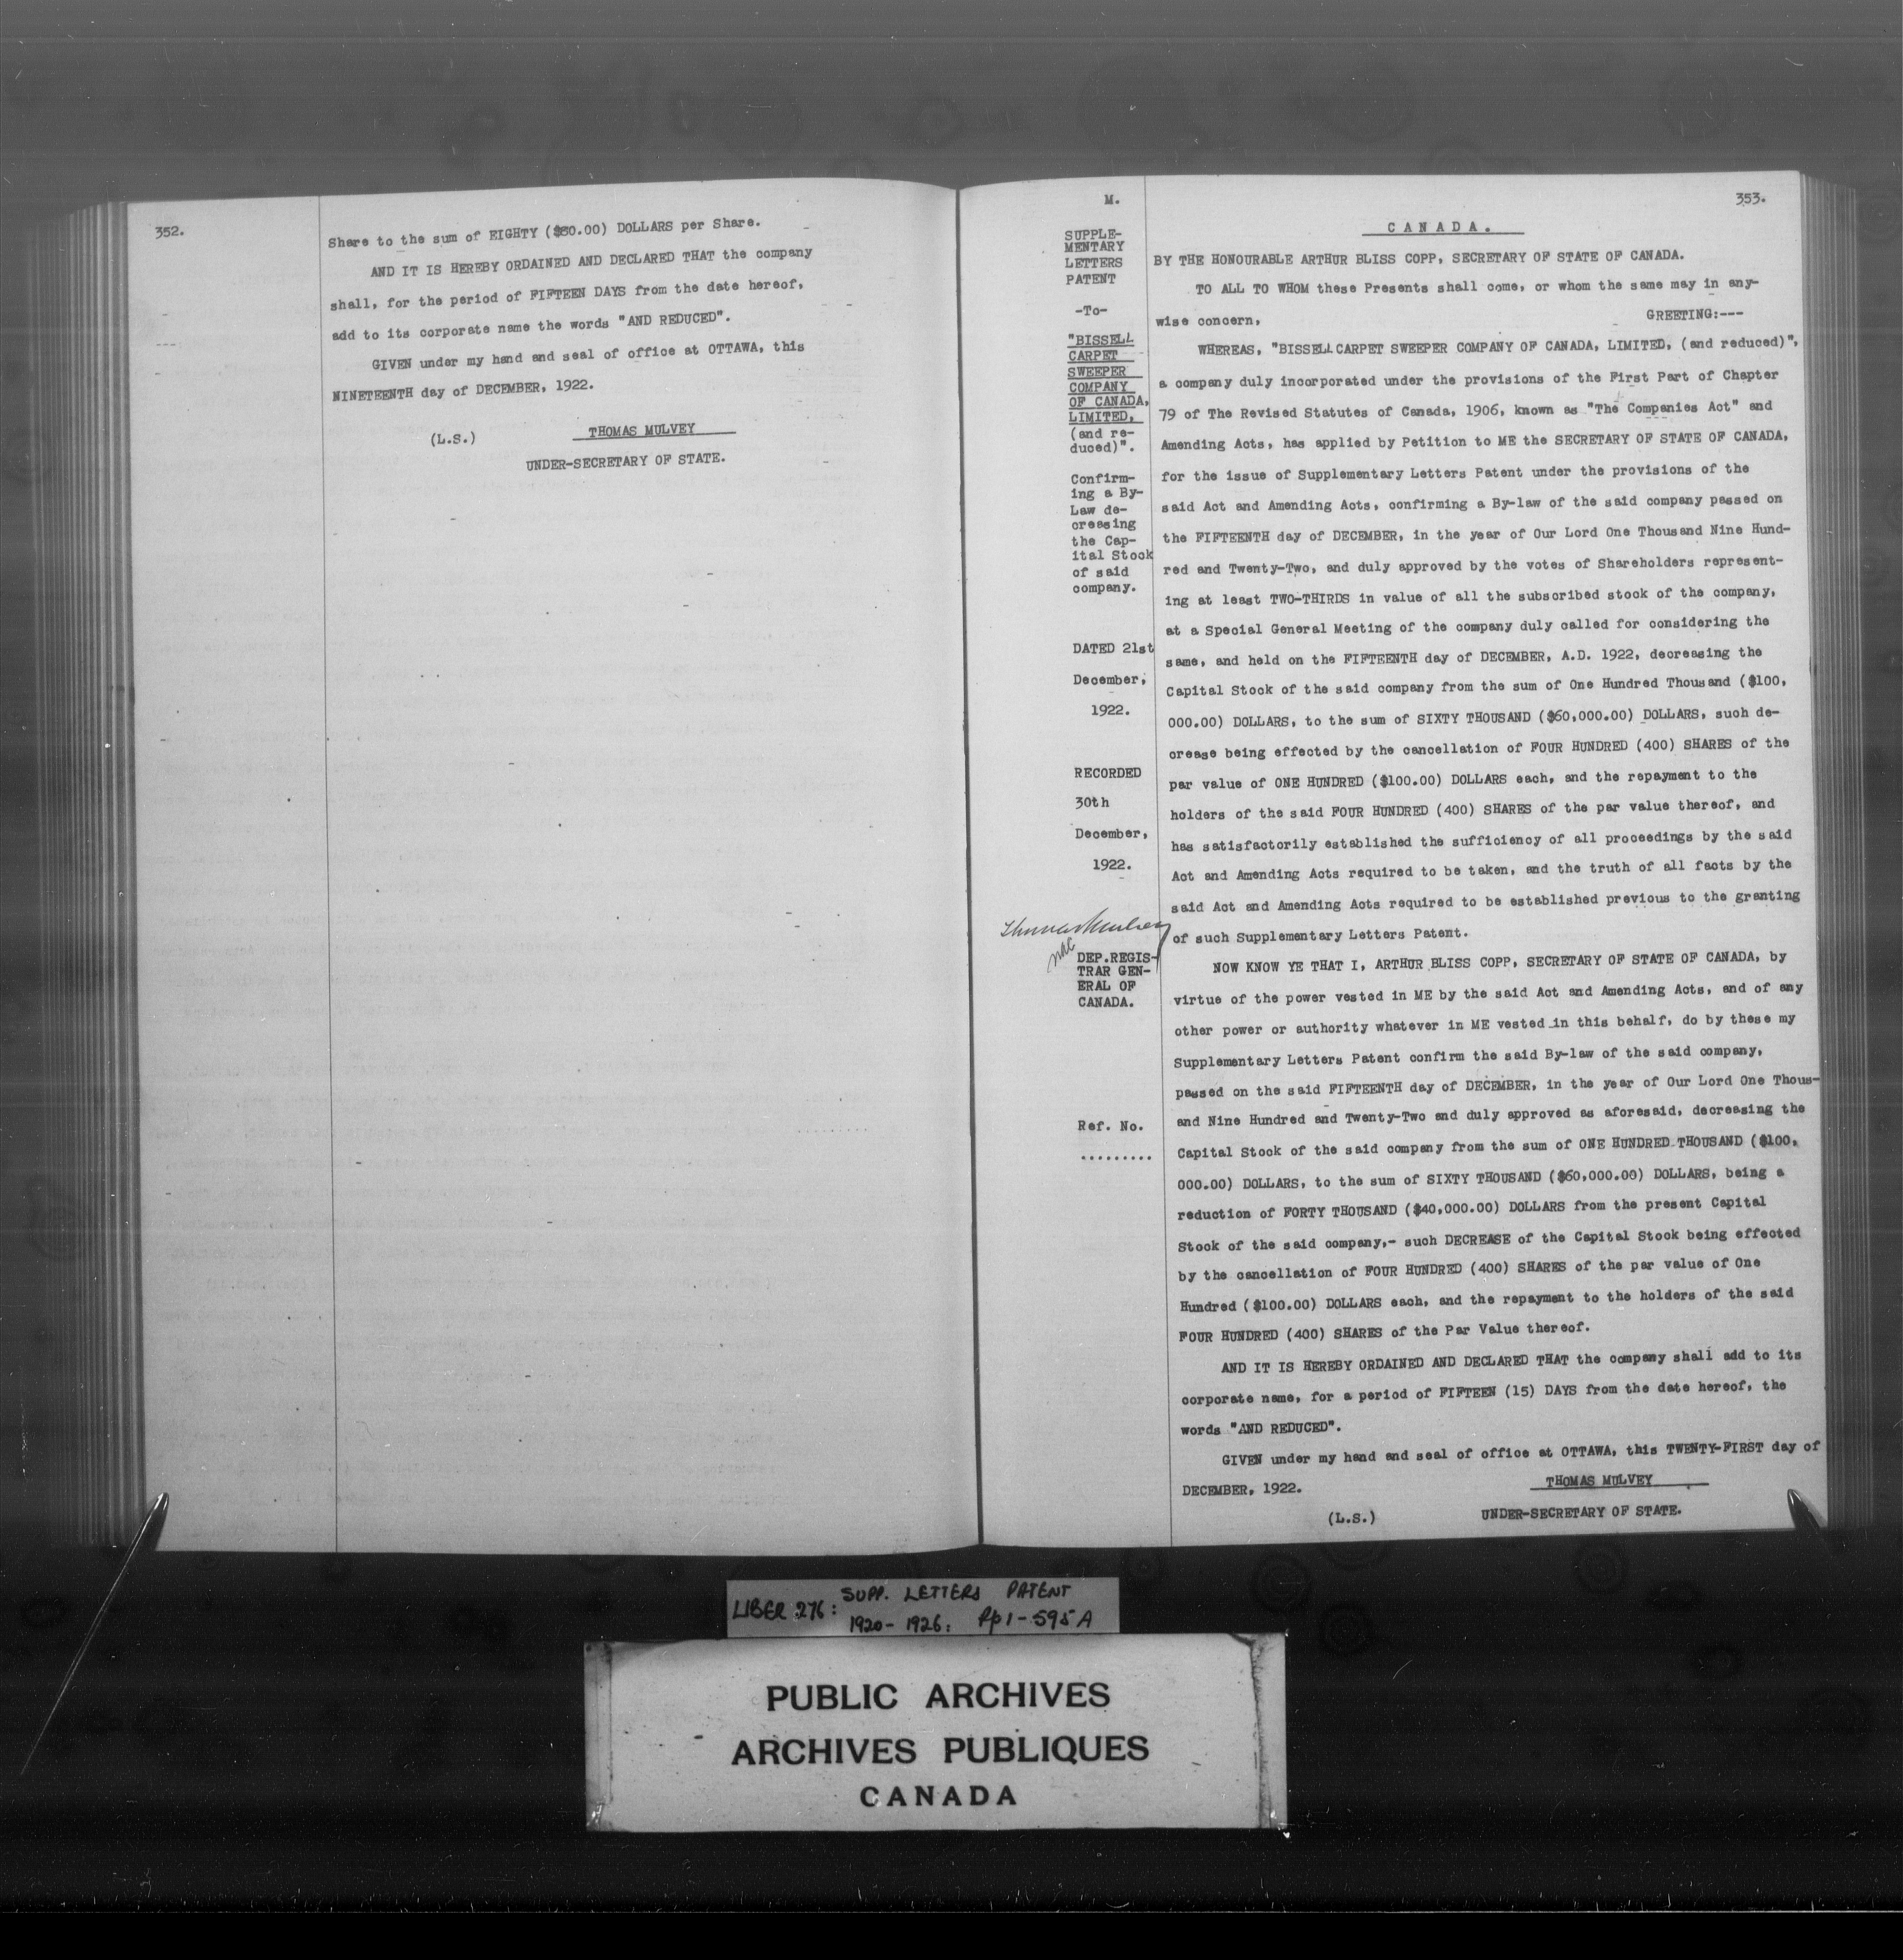 352.
Share to the sum of EIGHTY ($80.00) DOLLARS per Share.
AND IT IS HEREBY ORDAINED AND DECLARED THAT the company
shall, for the period of FIFTEEN DAYS from the date hereof,
add to its corporate name the words "AND REDUCED".
GIVEN under my hand and seal of office at OTTAWA, this
NINETEENTH day of DECEMBER, 1922.
(L.S.) THOMAS MULVEY
UNDER-SECRETARY OF STATE.
M.
SUPPLE-
MENTARY
LETTERS
PATENT
-To-
"BISSELL
CARPET
SWEEPER
COMPANY
OF CANADA,
LIMITED,
(and re-
duced)".
Confirm-
ing a By-
Law de-
creasing
the Cap-
ital Stock
of said
company.
DATED 21st
December,
1922.
RECORDED
30th
December,
1922.
Thomas Mulvey
DEP.REGIS-
TRAR GEN-
ERAL OF
CANADA.
Ref. No.
.........
353.
CANADA.
BY THE HONOURABLE ARTHUR BLISS COPP, SECRETARY OF STATE OF CANADA.
TO ALL TO WHOM these Presents shall come, or whom the same may in any-
wise concern, GREETING:---
WHEREAS, "BISSELL CARPET SWEEPER COMPANY OF CANADA, LIMITED, (and reduced)",
a company duly incorporated under the provisions of the First Part of Chapter
79 of The Revised Statutes of Canada, 1906, known as "The Companies Act" and
Amending Acts, has applied by Petition to ME the SECRETARY OF STATE OF CANADA,
for the issue of Supplementary Letters Patent under the provisions of the
said Act and Amending Acts, confirming a By-law of the said company passed on
the FIFTEENTH day of DECEMBER, in the year of Our Lord One Thousand Nine Hund-
red and Twenty-Two, and duly approved by the votes of Shareholders represent-
ing at least TWO-THIRDS in value of all the subscribed stock of the company,
at a Special General Meeting of the company duly called for considering the
same, and held on the FIFTEENTH day of DECEMBER, A.D. 1922, decreasing the
Capital Stock of the said company from the sum of One Hundred Thousand ($100,
000.00) DOLLARS, to the sum of SIXTY THOUSAND ($60,000.00) DOLLARS, such de-
crease being effected by the cancellation of FOUR HUNDRED (400) SHARES of the
par value of ONE HUNDRED ($100.00) DOLLARS each, and the repayment to the
holders of the said FOUR HUNDRED (400) SHARES of the par value thereof, and
has satisfactorily established the sufficiency of all proceedings by the said
Act and Amending Acts required to be taken, and the truth of all facts by the
said Act and Amending Acts required to be established previous to the granting
of such Supplementary Letters Patent.
NOW KNOW YE THAT I, ARTHUR BLISS COPP, SECRETARY OF STATE OF CANADA, by
virtue of the power vested in ME by the said Act and Amending Acts, and of any
other power or authority whatever in ME vested in this behalf, do by these my
Supplementary Letters Patent confirm the said By-law of the said company,
passed on the said FIFTEENTH day of DECEMBER, in the year of Our Lord One Thous-
and Nine Hundred and Twenty-Two and duly approved as aforesaid, decreasing the
Capital Stock of the said company from the sum of ONE HUNDRED THOUSAND ($100,
000.00) DOLLARS, to the sum of SIXTY THOUSAND ($60,000.00) DOLLARS, being a
reduction of FORTY THOUSAND ($40,000.00) DOLLARS from the present Capital
Stock of the said company,- such DECREASE of the Capital Stock being effected
by the cancellation of FOUR HUNDRED (400) SHARES of the par value of One
Hundred ($100.00) DOLLARS each, and the repayment to the holders of the said
FOUR HUNDRED (400) SHARES of the Par Value thereof.
AND IT IS HEREBY ORDAINED AND DECLARED THAT the company shall add to its
corporate name, for a period of FIFTEEN (15) DAYS from the date hereof, the
words "AND REDUCED".
GIVEN under my hand and seal of office at OTTAWA, this TWENTY-FIRST day of
DECEMBER, 1922. THOMAS MULVEY
(L.S.) UNDER-SECRETARY OF STATE.
LIBER 276: SUPP. LETTERS PATENT
1920-1926: Pp 1-595A
PUBLIC ARCHIVES
ARCHIVES PUBLIQUES
CANADA